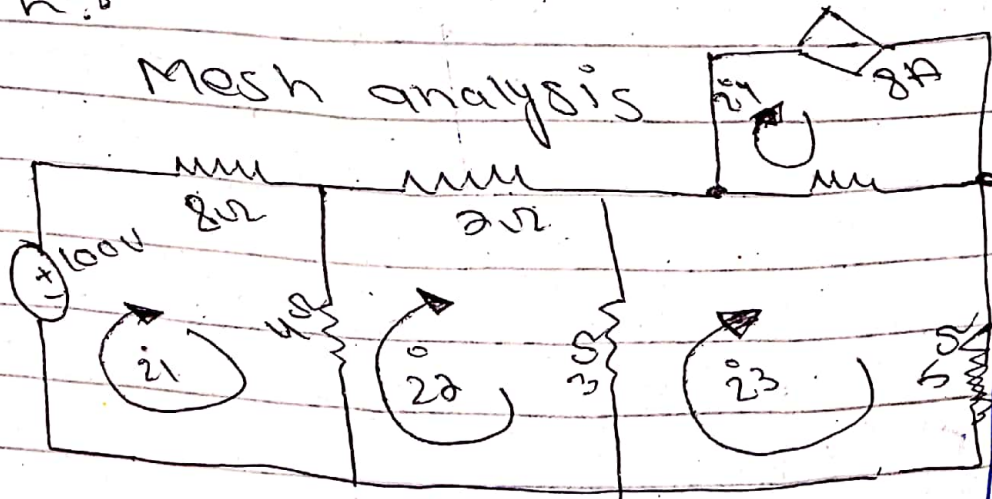 Mesh analysis
8A
i4
8Ω
2Ω
100V
+
-
4Ω
3Ω
5Ω
i1
i2
i3